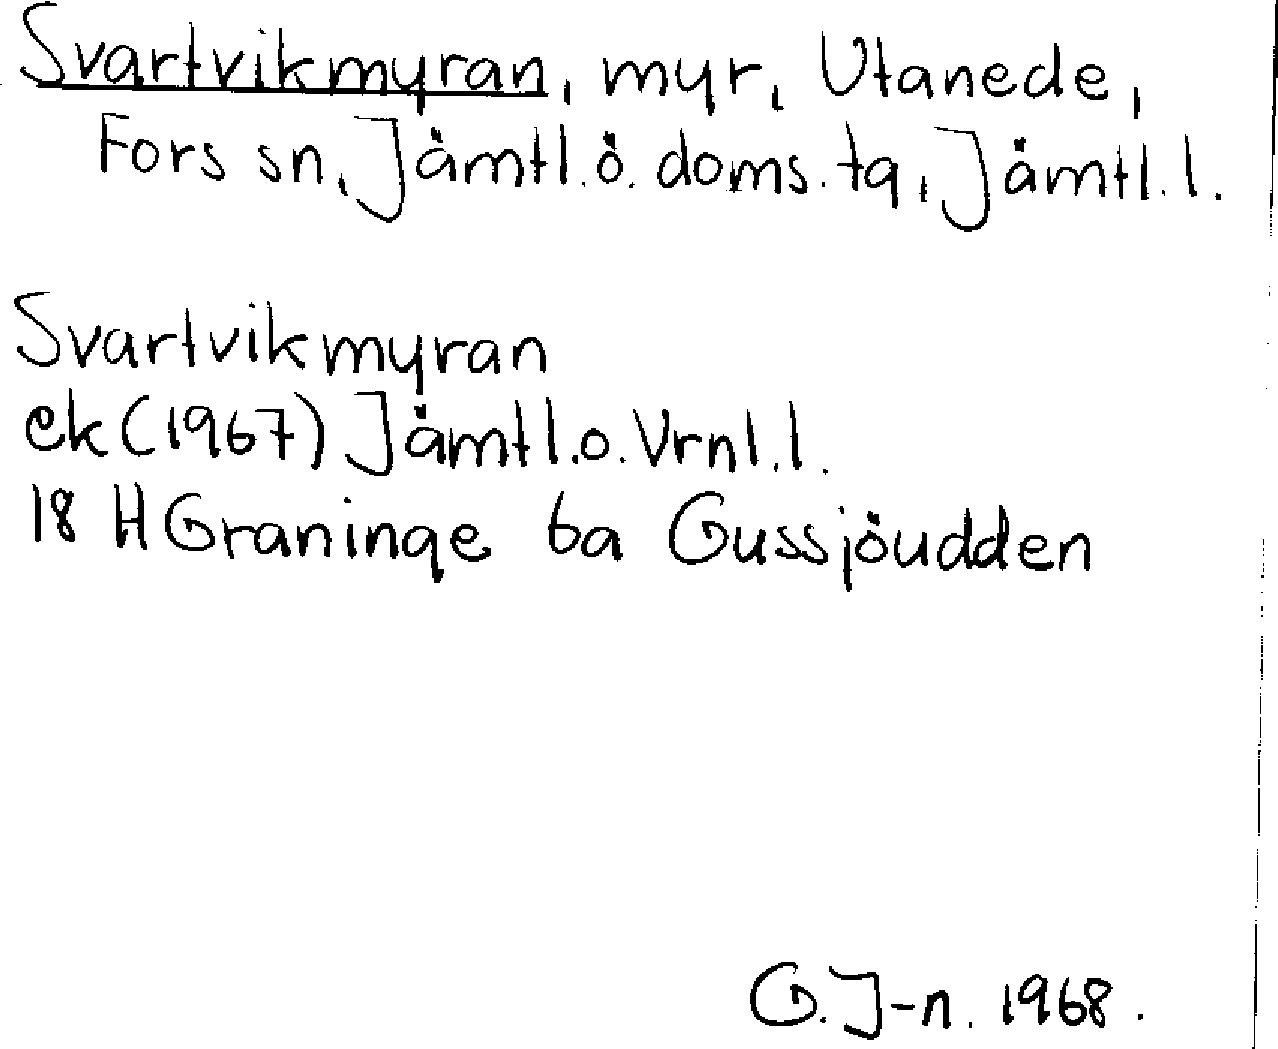 Svartvikmyran, myr, Utanede,
Fors sn, Jämtl.ö.doms.tg, Jämtl.l.
Svartvikmyran
ek (1967) Jämtl.o.Vrnl.l.
18 H Graninge 6a Gussjöudden
G.J-n. 1968.